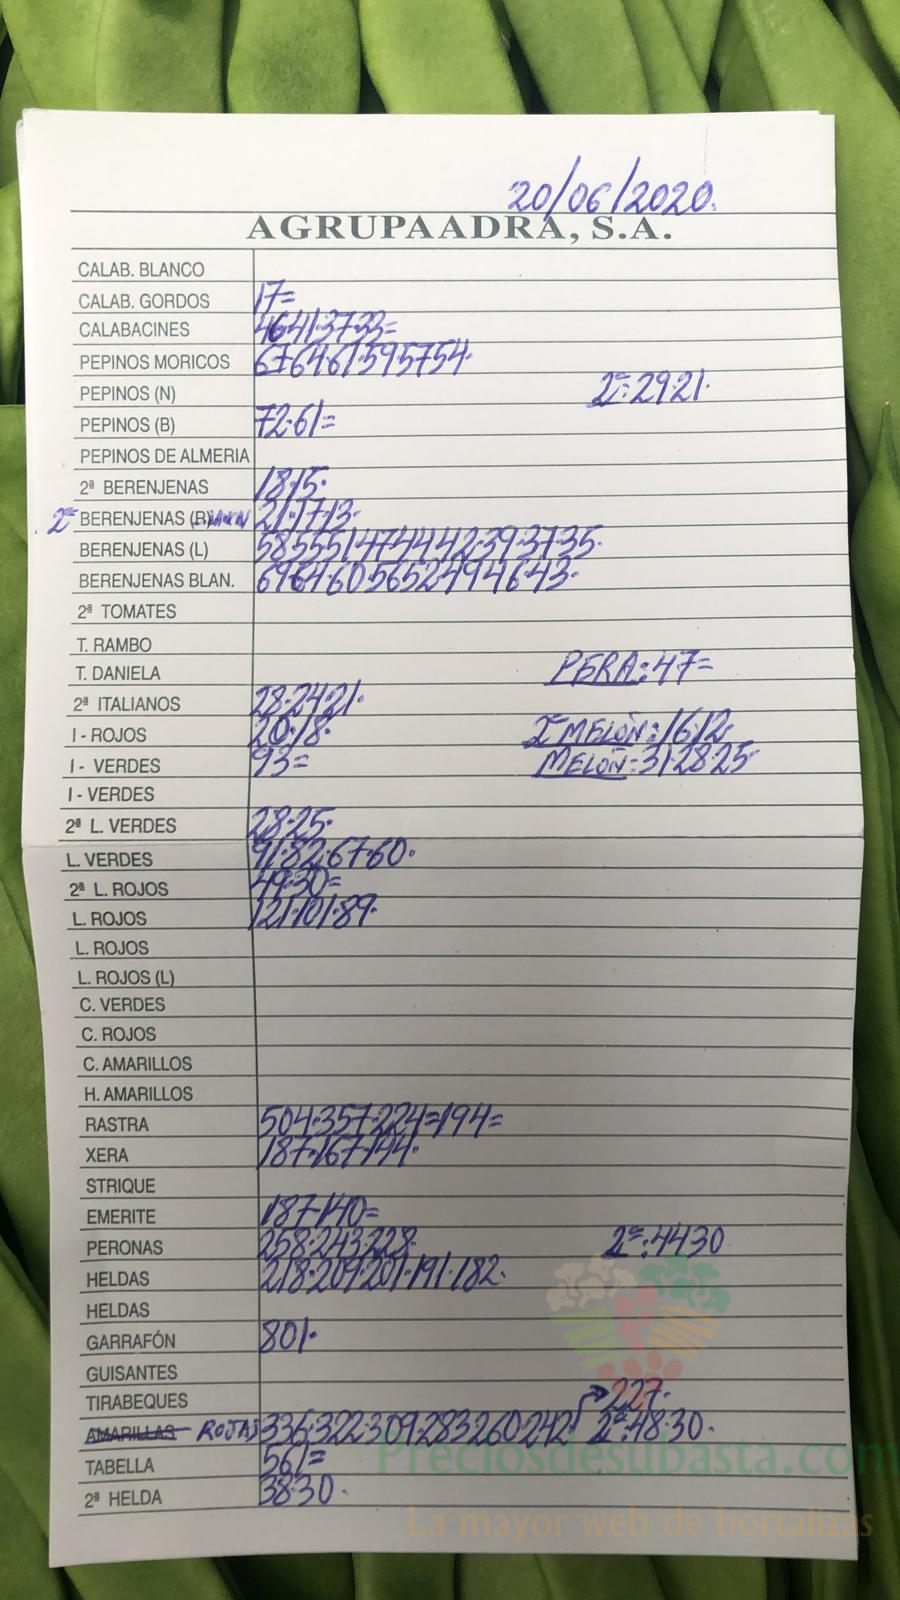 20/06/2020.
AGRUPAADRA, S.A.
CALAB. BLANCO
CALAB. GORDOS 17=
CALABACINES 46·41·37·33=
PEPINOS MORICOS 67·64·61·59·57·54·
PEPINOS (N) 2ª: 29·21·
PEPINOS (B) 72·61=
PEPINOS DE ALMERIA
2ª BERENJENAS 18·15·
2ª BERENJENAS 21·17·13·
BERENJENAS (L) 58·55·51·47·44·42·39·37·35·
BERENJENAS BLAN. 69·64·60·56·52·49·46·43·
2ª TOMATES
T. RAMBO
T. DANIELA PERA: 47=
2ª ITALIANOS 28·24·21·
I - ROJOS 20·18· 2ª MELÓN: 16·12·
I - VERDES 93= MELÓN: 31·28·25·
I - VERDES
2ª L. VERDES 28·25·
L. VERDES 91·82·67·60·
2ª L. ROJOS 49·30=
L. ROJOS 121·101·89·
L. ROJOS
L. ROJOS (L)
C. VERDES
C. ROJOS
C. AMARILLOS
H. AMARILLOS
RASTRA 504·357·224=194=
XERA 187·167·144·
STRIQUE
EMERITE 187·140=
PERONAS 258·243·228· 2ª: 44·30
HELDAS 218·209·201·191·182·
HELDAS
GARRAFÓN 801·
GUISANTES
TIRABEQUES 227·
AMARILLAS ROJAS 336·322·309·283·260·242· 2ª: 48·30·
TABELLA 561=
2ª HELDA 38·30·
Preciosdesubasta.com
La mayor web de hortalizas